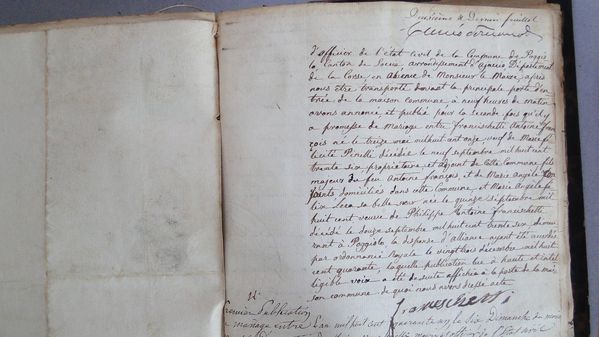 Deuxième & Dernier feuillet
d'officier de l'état civil de la Commune de Poggio
lo Canton de Soccia arrondissement d'Ajaccio Département
de la Corse, en absence de Monsieur le Maire, après
nous être transporté devant la principale porte d'en
trée de la maison commune à neuf heures de matin
avons annoncé et publié pour la seconde fois qu'il y
a promesse de Mariage entre franceschetti Antoine fran
çois né le treize mai mil huit cent onze veuf de Marie fé
licité Pinelli décédée le neuf septembre mil huit cent
trente six propriétaire et adjoint de cette Commune fils
majeur de feu Antoine françois, et de Marie Angèle
domiciliés dans cette Commune et Marie Angèle fé
lix Leca sa belle sœur née le quinze septembre mil
huit cent veuve de Philippe Antoine franceschetti
décédé le douze septembre mil huit cent trente six, demeu
rant à Poggiolo, la dispense d'alliance ayant été accordée
par ordonnance royale le vingt trois décembre mil huit
cent quarante, laquelle publication lue à haute et intel
ligible voix a été de suite affichée à la porte de la mai
son commune, de quoi nous avons dressé acte
franceschetti
Première Publication
de mariage entre
L'an mil huit cent quarante un le six Dimanche du mois